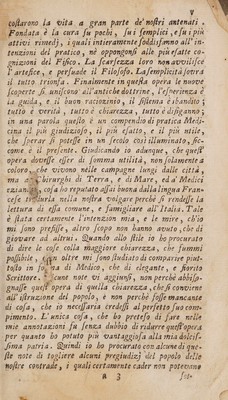 v
costarono la vita a gran parte de' nostri antenati.
Fondata è la cura su pochi, su i semplici, e su i più
attivi rimedj, i quali intieramente soddisfanno all'in-
tenzioni del pratico, nè oppongonsi alle più esatte co-
gnizioni del Fisico. La scarsezza loro non avvilisce
l'artefice, e persuade il Filosofo. La semplicità sovra
il tutto trionfa. Finalmente in questa opera le nuove
scoperte si uniscono all'antiche dottrine, l'esperienza è
la guida, e il buon raziocinio, il sistema è sbandito;
tutto è verità, tutto è chiarezza, tutto è disinganno;
in una parola questo è un compendio di pratica Medi-
cina il più giudizioso, il più esatto, e il più utile,
che sperar si potesse in un secolo così illuminato, sic-
come è il presente. Giudicando io adunque, che quest'
opera dovesse esser di somma utilità, non solamente a
coloro, che vivono nelle campagne lungi dalle città,
ma a' Chirurghi di Terra, e di Mare, ed a' Medici
cosa ho reputato assai buona dalla lingua Fran-
cese nella nostra volgare perchè si rendesse la
lettura di essa comune, e famigliare all'Italia. Tale
è stata certamente l'intenzion mia, e le mire, ch'io
mi sono prefisse, altro scopo non hanno avuto, che di
giovare ad altrui. Quando allo stile io ho procurato
di dire le cose colla maggior chiarezza, che fummi
possibile, oltre mi sono studiato di comparire piut-
tosto in di Medico, che di elegante, e fiorito
Scrittore. note vi aggiunsi, non perchè abbiso-
gnasse quest'opera di quella chiarezza, che si conviene
all'istruzione del popolo, e non perchè fosse mancante
di cosa, che io necessaria credessi al perfetto suo com-
pimento. L'unica cosa, che ho preteso di fare nelle
mie annotazioni fu senza dubbio di ridurre quest'opera
per quanto ho potuto più vantaggiosa alla mia dolcis-
sima patria. Quindi io ho procurato con alcune di que-
ste note di togliere alcuni pregiudizj del popolo delle
nostre contrade, i quali certamente cader non potevano
a 3